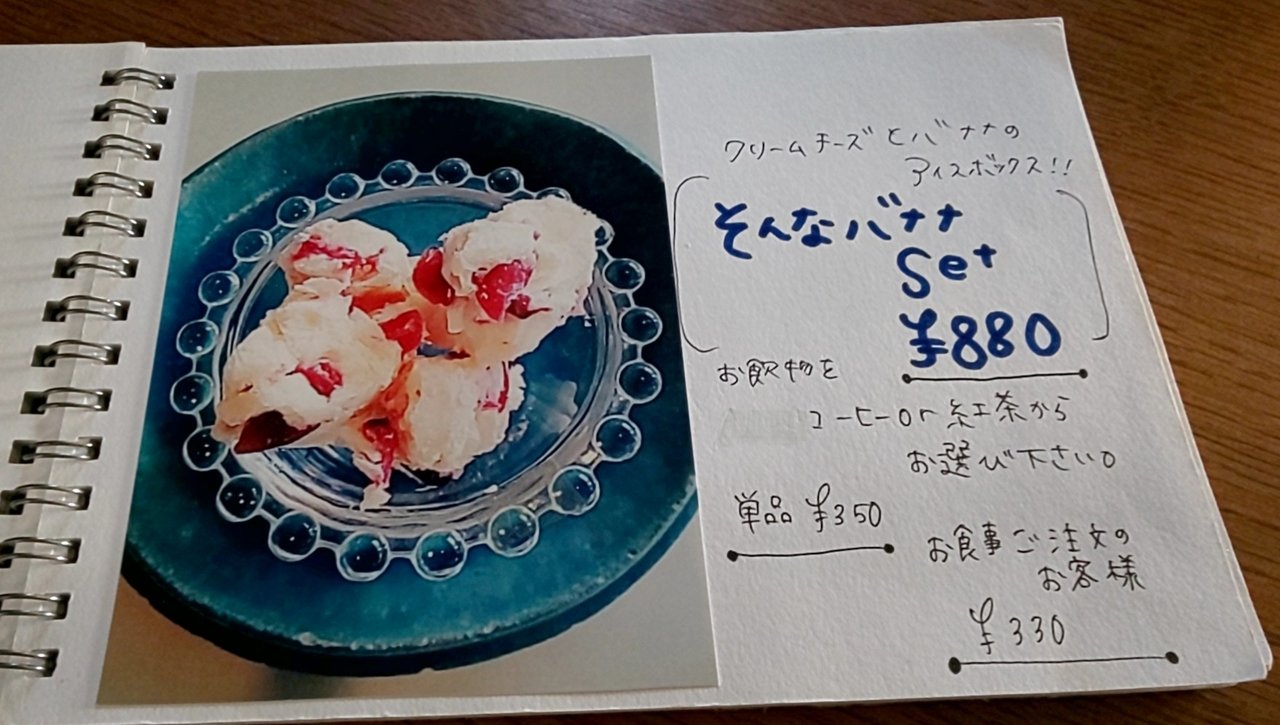 クリームチーズとバナナの
アイスボックス!!
そんなバナナ
Set
¥880
お飲物を
コーヒーor紅茶から
お選び下さい。
単品 ¥350
お食事ご注文の
お客様
¥330